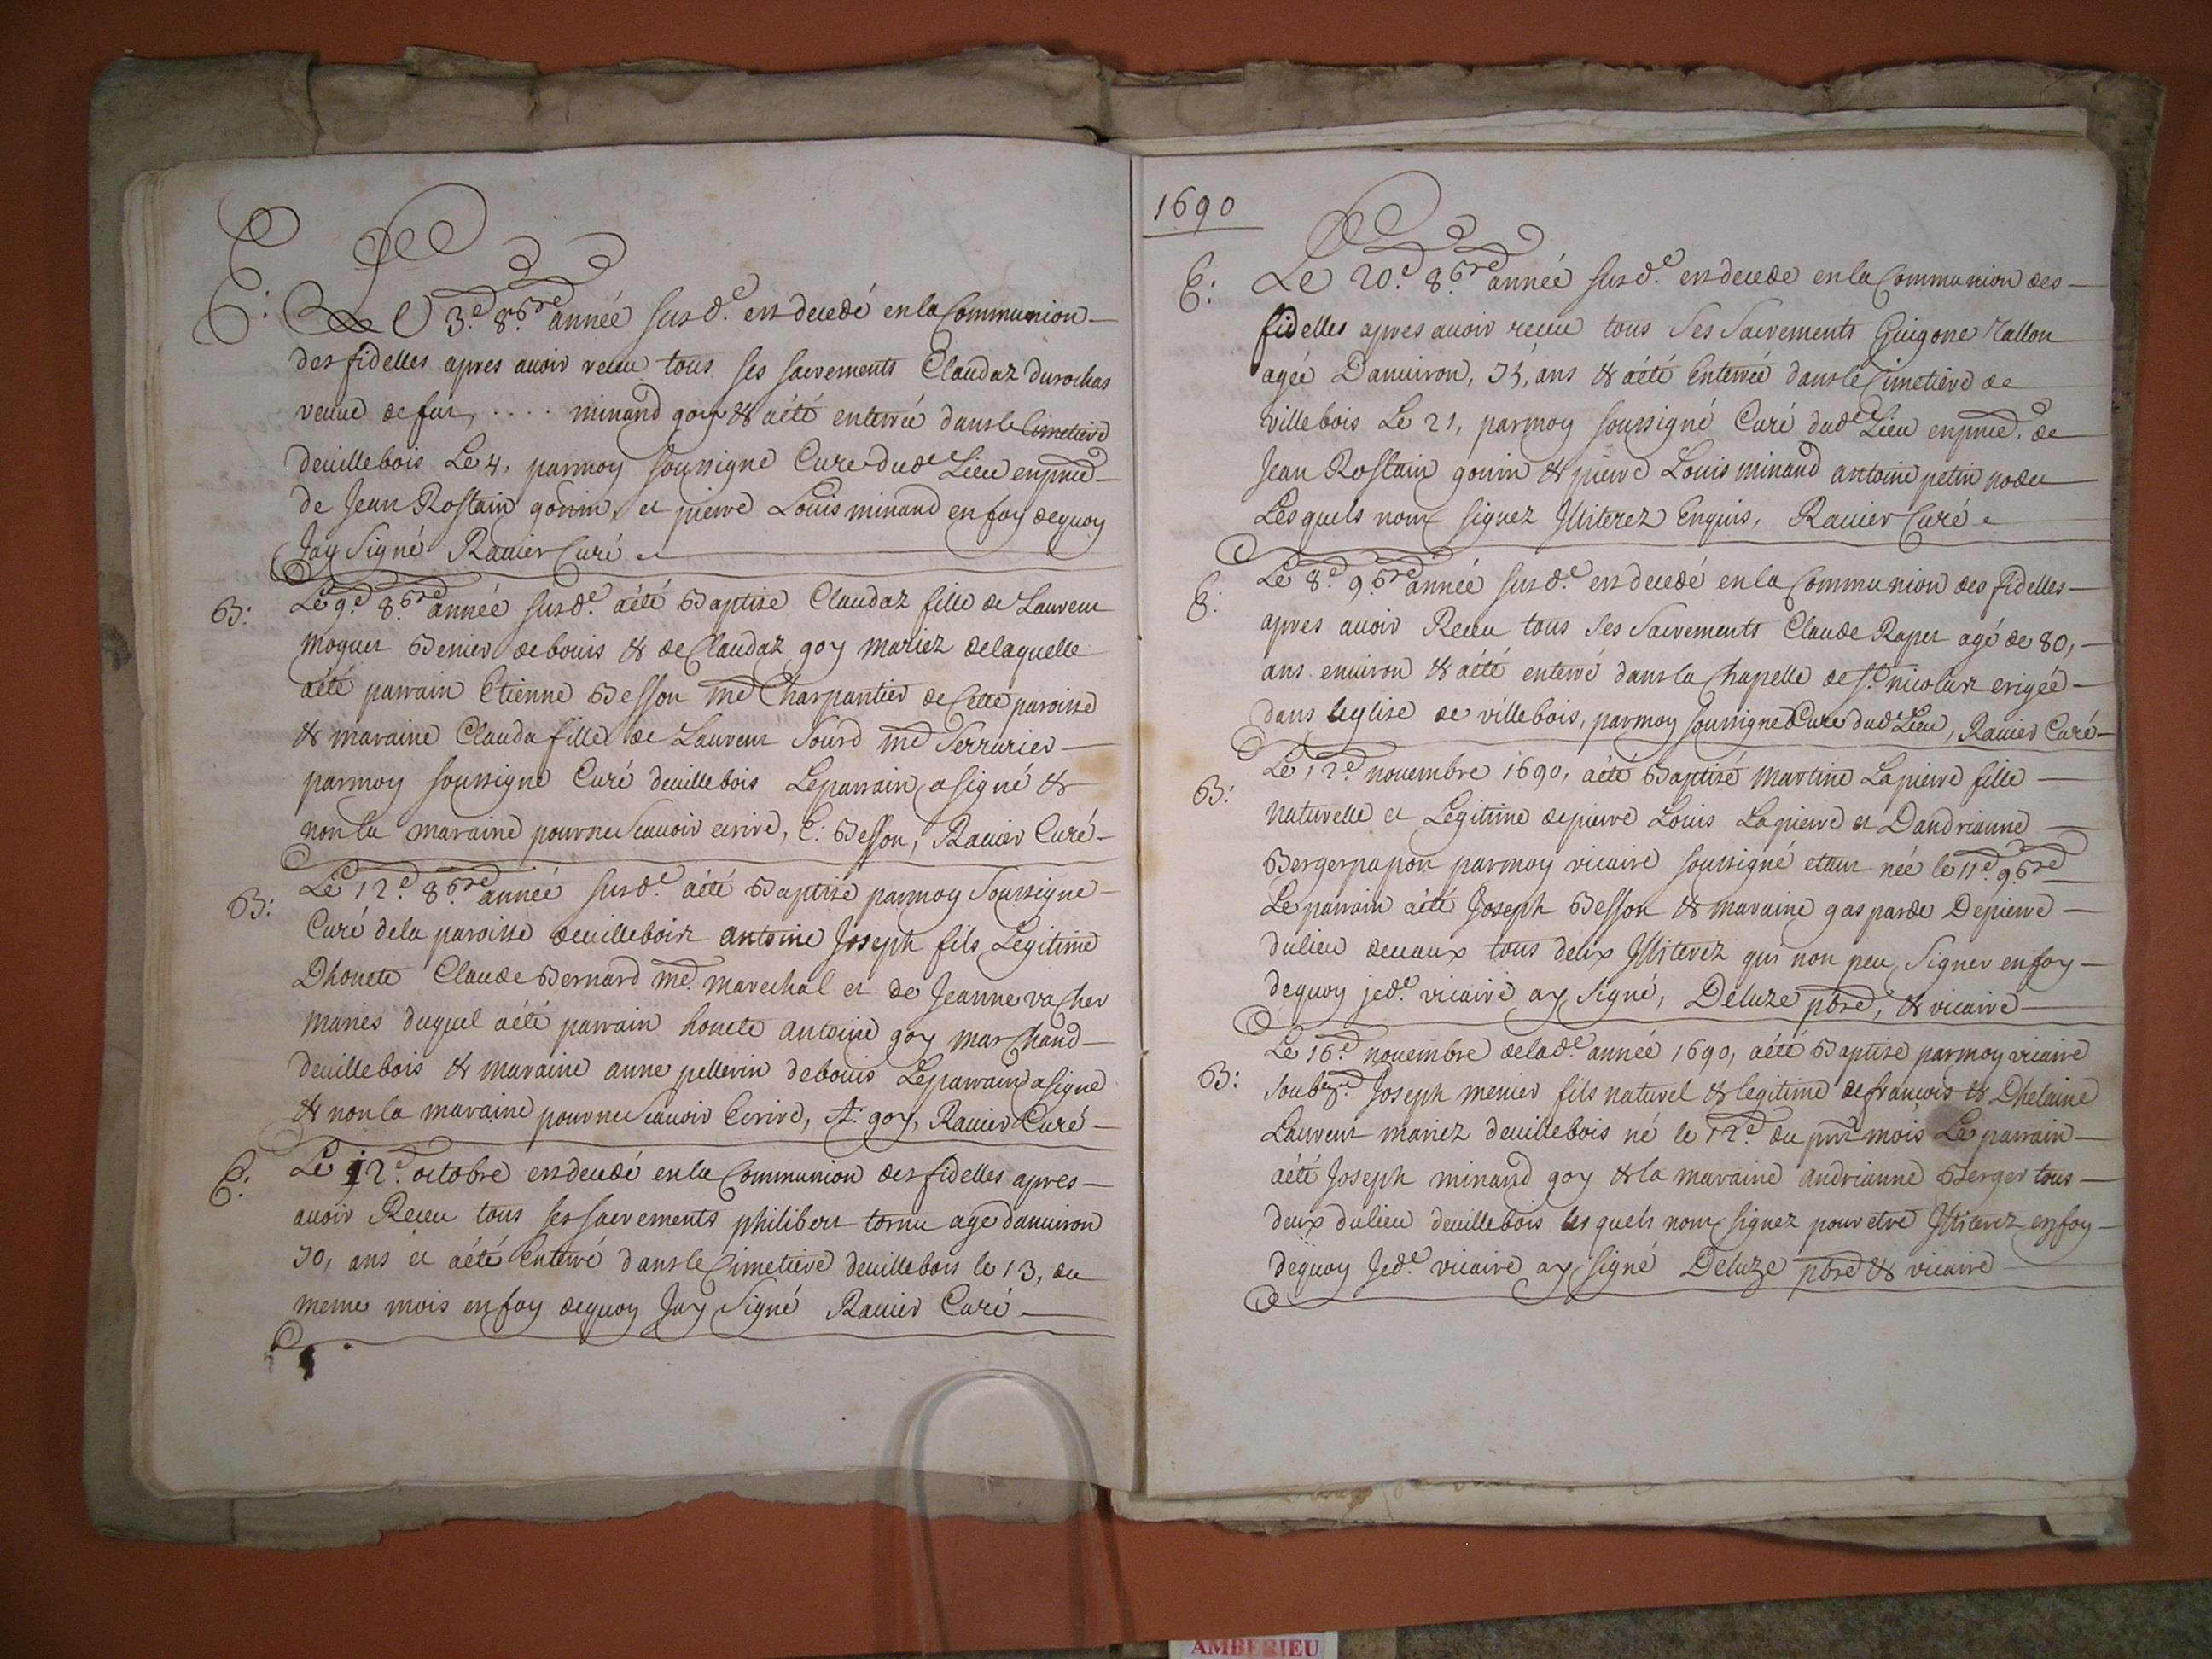 E: Le 3.e 8.bre année susd.e est decedé en la Communion
des fidelles apres avoir receu tous ses sacrements Claudaz durochas
veuue de fut, .... minand goy & aété enterrée dans le Cimetiere
deuillebois Le 4, parmoy soussigné Curé dud.e Lieu enpnce
de Jean Rostain gonin, et pierre Louis minand enfoy dequoy
Jay Signé Rauier Curé
B: Le 9.e 8.bre année susd.e aété Baptisé Claudaz fille de Laurent
moquet Benier debouis & de Claudaz goy mariez delaquelle
aété parrain Etienne Besson me Charpantier de Cette paroisse
& maraine Clauda fille de Laurent Sourd me Serrurier
parmoy soussigné Curé deuillebois Leparrain asigné &
non la maraine pourne Scauoir ecrire, E. Besson, Rauier Curé
B: Le 12.e 8.bre année susd.e aété Baptisé parmoy Soussigné
Curé dela paroisse deuillebois antoine Joseph fils Legitime
Dhonete Claude Bernard me. marechal et de Jeanne vacher
mariés duquel aété parrain honete antoine goy marchand
deuillebois & maraine anne pellerin debouis Leparrain asigné
& non la maraine pourne Scauoir Ecrire, A. goy, Rauier Curé
E: Le 12.e octobre est decedé en la Communion des fidelles apres
auoir Receu tous ses sacrements philibert tornu agé danuiron
70, ans et aété Enterré dans le Cimetiere deuillebois le 13, du
meme mois enfoy dequoy Jay Signé Rauier Curé
1690
E: Le 20.e 8.bre année susd.e est decede en la Communion des
fidelles apres auoir receu tous Ses Sacrements Guigone Tallon
agée Danuiron, 74, ans & aété Enterrée dans le Cimetiere de
villebois Le 21, parmoy soussigné Curé dud.e Lieu enpnce. de
Jean Rostain gonin & pierre Louis minand antoine petin
Lesquels nont signez Illiterez Enquis, Rauier Curé
E: Le 8.e 9.bre année susd.e est decedé en la Communion des fidelles
apres auoir Receu tous Ses Sacrements Claude Raper agé de 80,
ans enuiron & aété enterré dans la Chapelle de St. nicolas erigée
dans leglise de villebois, parmoy soussigné Curé dud.e Lieu, Rauier Curé
B: Le 12.e nouembre 1690, aété Baptisé martine Lapierre fille
naturelle et Legitime depierre Louis Lapierre et Dandrianne
Bergerpapon parmoy vicaire soussigné etant née le 11.e 9.bre
Le parrain aété Joseph Besson & maraine gasparde Depierre
dulieu deuaux tous deux Illiterez qui non peu, Signer enfoy
dequoy jed.e vicaire ay Signé, Deluze pbre, & vicaire
B: Le 16.e nouembre delad.e année 1690, aété Baptisé parmoy vicaire
Joseph menier fils naturel & legitime defrancois & Dhelaine
Laurent mariez deuillebois né le 12.e du pnt mois Le parrain
aété Joseph minand goy & la maraine andrianne Berger tous
deux dulieu deuillebois les quels nont signez pour etre Illiterez enfoy
dequoy Jed.e vicaire ay signé Deluze pbre & vicaire
AMBERIEU